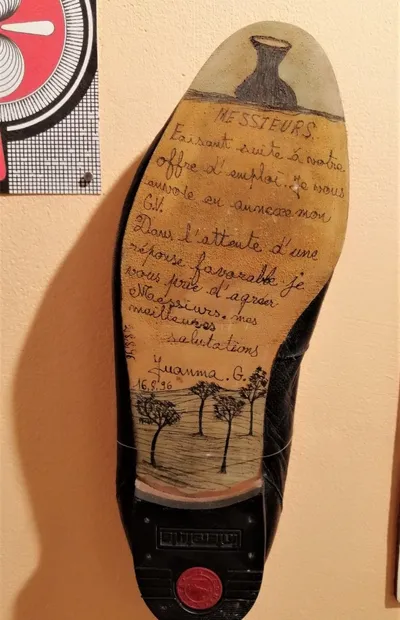 MESSIEURS.
Faisant suite à votre
offre d'emploi. Je vous
envoie en annexe mon
C.V.
Dans l'attente d'une
réponse favorable je
vous prie d'agréer
Messieurs. mes
meilleures
salutations
Juanma. G.
16.8.96